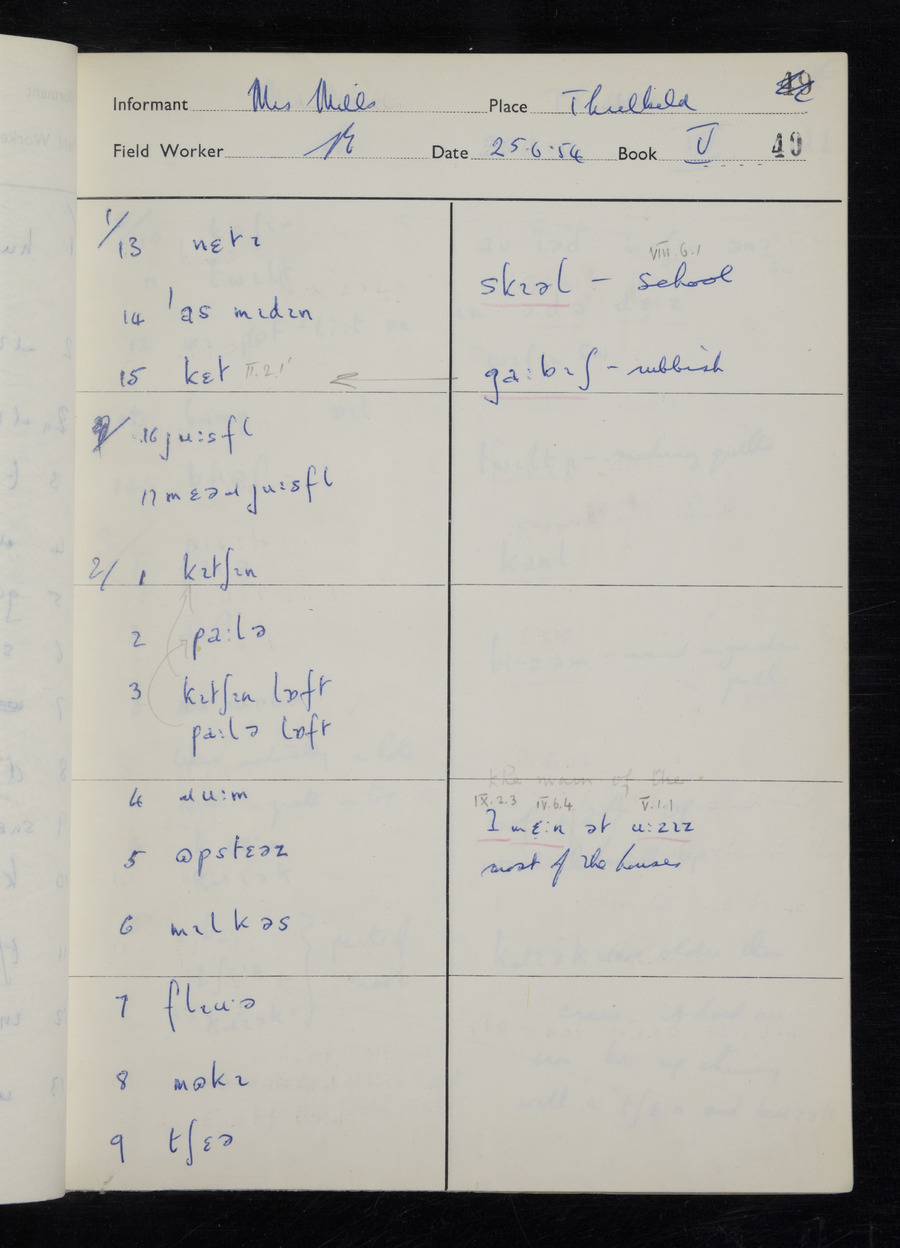 Informant Mrs Mills Place Threlkeld
Field Worker Date 25.6.54 Book V 49
1/13 nɛtɪ
14 ˈas mɪdɪn
15 kɛt II.2.1
16 ju:sfl
17 mɛəɹ ju:sfl
2/ 1 kɪtʃɪn
2 pa:lə
3 kɪtʃɪn lɒft
pa:lə lɒft
4 ɹu:m
5 ɷpstɛəz
6 mɪlkəs
7 flɪu:ə
8 mɷkɪ
9 tʃɛə
VIII.6.1
skɪəl – school
ga:bɪʃ – rubbish
the main of the
IX.2.3 IV.6.4 V.1.1
ɪ mɛ:n ət u:zɪz
most of the houses